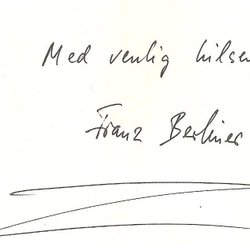 Med venlig hilsen
Franz Berliner